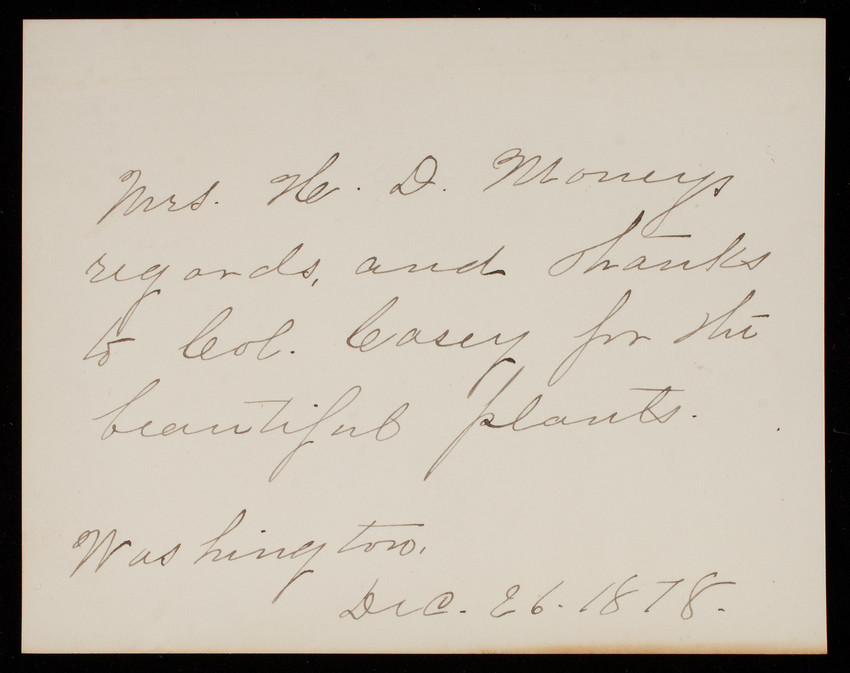 Mrs. H. D. Moneys
regards, and thanks
to Col. Casey for the
beautiful plants.
Washington,
Dec. 26. 1878.